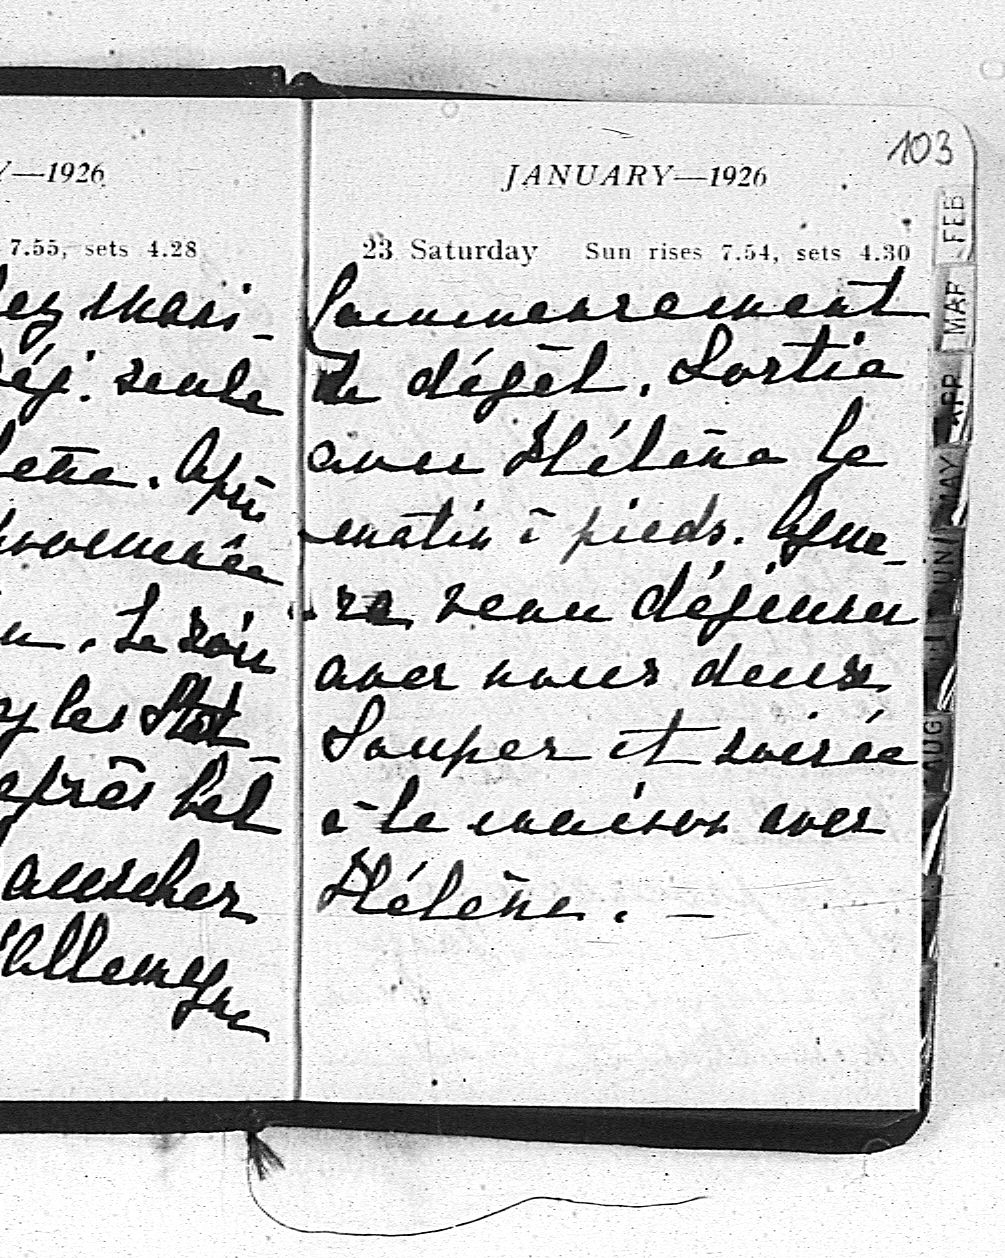 —1926
7.55, sets 4.28
mari-
déj. seule
. Après
promenée
. Le soir
les
après bal
Rauscher
d'Allemagne
103
JANUARY—1926
23 Saturday Sun rises 7.54, sets 4.30
Commencement
de dégèl. Sortie
avec Hélène le
matin à pieds.
venu déjeuner
avec nous deux.
Souper et soirée
à la maison avec
Hélène. —
FEB
MAR
APR
MAY
JUN
AUG